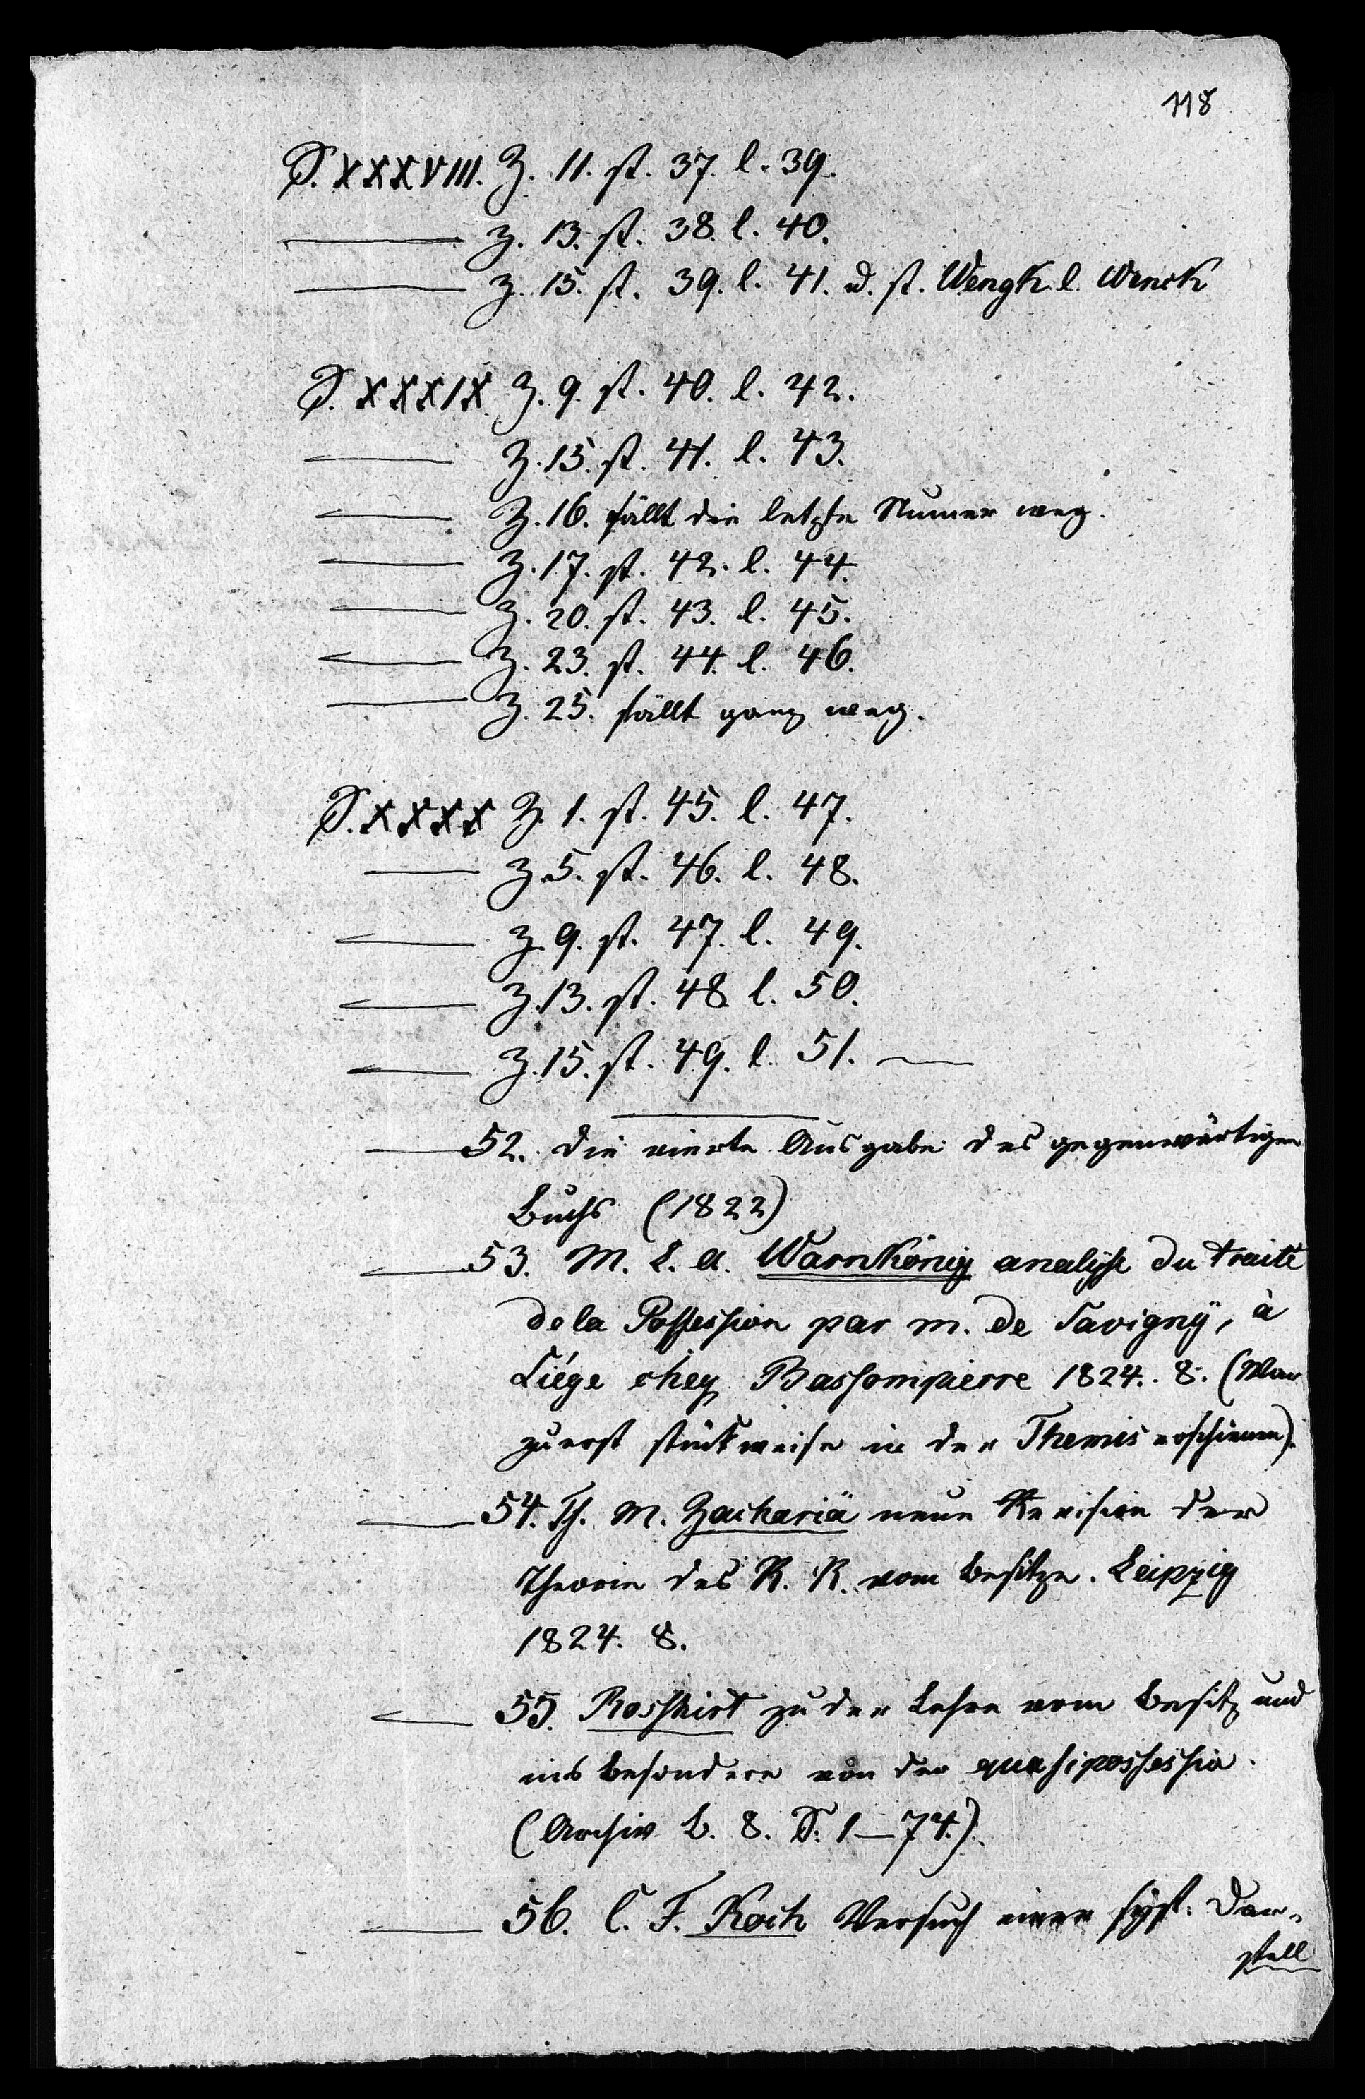 118
S. XXXVIII. Z. 11. st. 37. l. 39.
——— Z. 13. st. 38. l. 40.
——— Z. 15. st. 39. l. 41. u. st. Wengk l. Wenck
S. XXXIX Z. 9. st. 40. l. 42.
——— Z. 15. st. 41. l. 43.
——— Z. 16. fällt die letzte Numer weg.
——— Z. 17. st. 42. l. 44.
——— Z. 20. st. 43. l. 45.
——— Z. 23. st. 44. l. 46.
——— Z. 25. fällt ganz weg.
S. XXXX Z. 1. st. 45. l. 47.
——— Z. 5. st. 46. l. 48.
——— Z. 9. st. 47. l. 49.
——— Z. 13. st. 48 l. 50.
——— Z. 15. st. 49. l. 51. ———
——— 52. die vierte Ausgabe des gegenwärtigen
Buchs (1822)
——— 53. M. L. A. Warnkönig analyse du traité
de la Possession par m. de Savigny, à
Liége chez Bassompierre 1824. 8. (War
zuerst stückweise in der Themis erschienen).
——— 54. Th. M. Zachariä neue Revision der
Theorie des R. R. vom Besitze. Leipzig
1824. 8.
——— 55. Rosshirt zu der Lehre vom Besitz und
insbesondere von der quasipossessio.
(Archiv B. 8. S. 1—74.).
——— 56. C. F. Koch Versuch einer syst. Dar-
stell